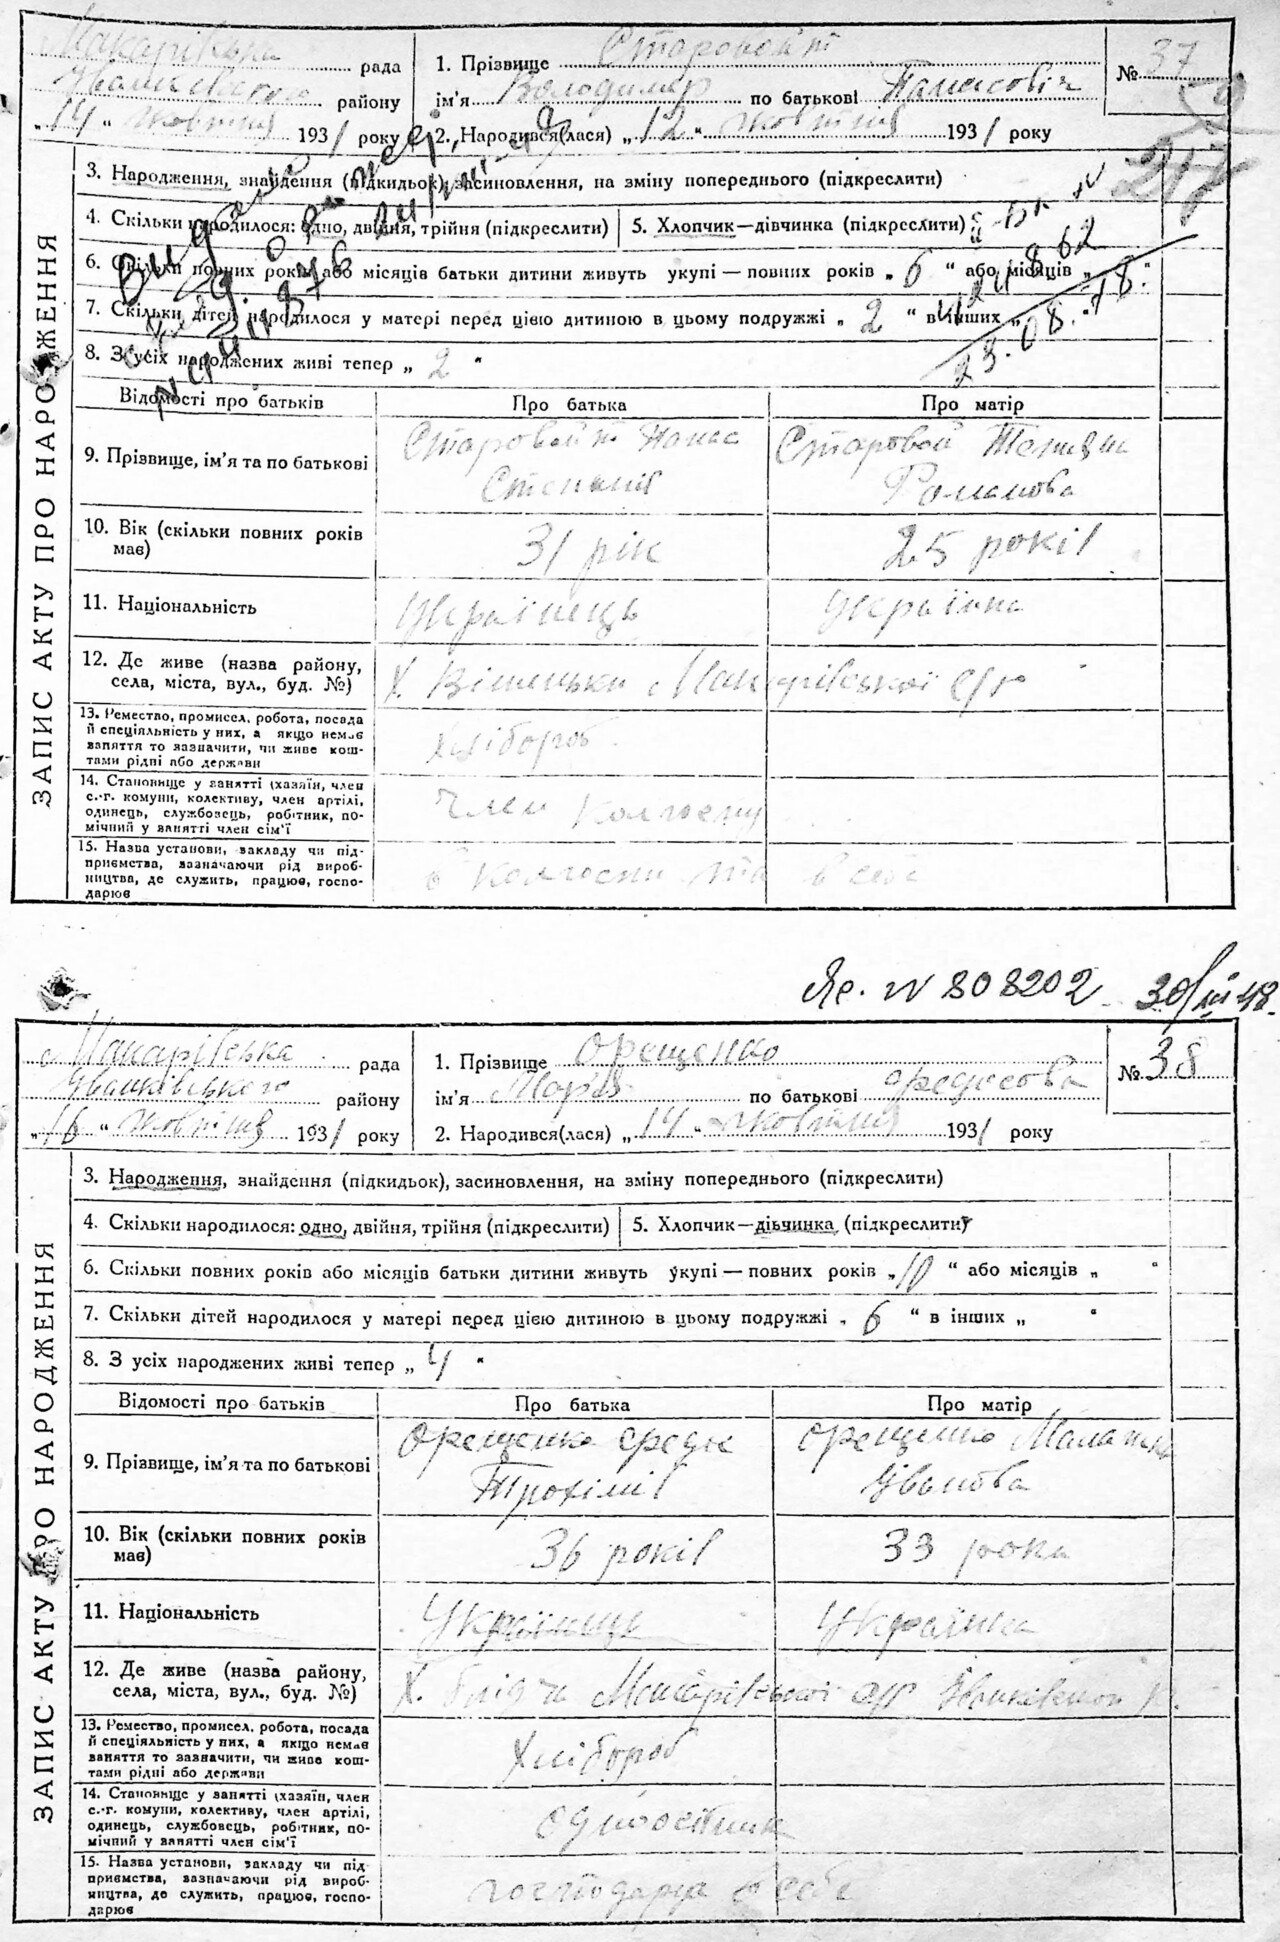 Макарівська рада
Іванківського району
„14“ жовтня 1931 року
1. Прізвище Старовойт
ім'я Володимир по батькові Панасовіч
2. Народився(лася) „12“ жовтня 1931 року
№ 37
217
3. Народження, знайдення (підкидьок), засиновлення, на зміну попереднього (підкреслити)
4. Скільки народилося: одно, двійня, трійня (підкреслити) 5. Хлопчик—дівчинка (підкреслити)
6. Скільки повних років або місяців батьки дитини живуть укупі — повних років „6“ або місяців „ “
7. Скільки дітей народилося у матері перед цією дитиною в цьому подружжі „2“ в інших „ “
23.08.78.
8. З усіх народжених живі тепер „2“
Відомості про батьків Про батька Про матір
9. Прізвище, ім'я та по батькові
Старовойт Панас
Степанів
Старовойт Тетяна
Романова
10. Вік (скільки повних років має)
31 рік 25 років
11. Національність Українець Українка
12. Де живе (назва району, села, міста, вул., буд. №)
Х. Вішеньки Макарівської с/р
13. Ремество, промисел, робота, посада й спеціяльність у них, а якщо немає заняття то зазначити, чи живе коштами рідні або держави
Хлібороб
14. Становище у занятті (хазяїн, член с.-г. комуни, колективу, член артілі, одинець, службовець, робітник, помічний у занятті член сім'ї
Член колгоспу
15. Назва установи, закладу чи підприємства, зазначаючи рід виробництва, де служить, працює, господарює
в колгоспи та в себе
ЗАПИС АКТУ ПРО НАРОДЖЕННЯ
N 808202 30/III 48.
Макарівська рада
Іванківського району
„16“ жовтня 1931 року
1. Прізвище Орещенко
ім'я Мар'я по батькові Фредосова
2. Народився(лася) „14“ жовтня 1931 року
№ 38
3. Народження, знайдення (підкидьок), засиновлення, на зміну попереднього (підкреслити)
4. Скільки народилося: одно, двійня, трійня (підкреслити) 5. Хлопчик—дівчинка (підкреслити)
6. Скільки повних років або місяців батьки дитини живуть укупі — повних років „10“ або місяців „ “
7. Скільки дітей народилося у матері перед цією дитиною в цьому подружжі „6“ в інших „ “
8. З усіх народжених живі тепер „4“
Відомості про батьків Про батька Про матір
9. Прізвище, ім'я та по батькові
Орещенко
Трохімів
Орещенко
Іванова
10. Вік (скільки повних років має)
36 років 33 рока
11. Національність Українець Українка
12. Де живе (назва району, села, міста, вул., буд. №)
Х. Макарівської с/р Іванківський р.
13. Ремество, промисел, робота, посада й спеціяльність у них, а якщо немає заняття то зазначити, чи живе коштами рідні або держави
Хлібороб
14. Становище у занятті (хазяїн, член с.-г. комуни, колективу, член артілі, одинець, службовець, робітник, помічний у занятті член сім'ї
одноосібник
15. Назва установи, закладу чи підприємства, зазначаючи рід виробництва, де служить, працює, господарює
господарця в себе
ЗАПИС АКТУ ПРО НАРОДЖЕННЯ